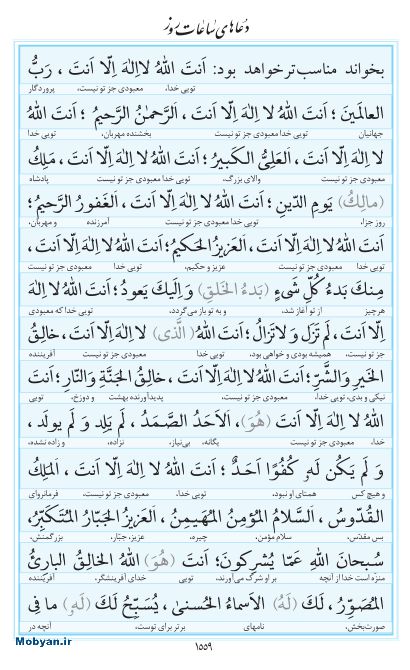 دعاهای ساعات روز
بخواند مناسب‌تر خواهد بود: اَنتَ اللهُ لا اِلٰهَ اِلّا اَنتَ ، رَبُّ
تویی خدا، معبودی جز تو نیست، پروردگار
العالَمینَ ؛ اَنتَ اللهُ لا اِلٰهَ اِلّا اَنتَ ، اَلرَّحمٰنُ الرَّحیمُ ؛ اَنتَ اللهُ
جهانیان تویی خدا معبودی جز تو نیست بخشنده مهربان، تویی خدا
لا اِلٰهَ اِلّا اَنتَ ، اَلعَلِیُّ الکَبیرُ ؛ اَنتَ اللهُ لا اِلٰهَ اِلّا اَنتَ ، مَلِکُ
معبودی جز تو نیست والای بزرگ، تویی خدا معبودی جز تو نیست پادشاه
(مالِکُ) یَومِ الدّینِ ؛ اَنتَ اللهُ لا اِلٰهَ اِلّا اَنتَ ، اَلغَفورُ الرَّحیمُ ؛
روز جزا، تویی خدا معبودی جز تو نیست آمرزنده و مهربان،
اَنتَ اللهُ لا اِلٰهَ اِلّا اَنتَ ، اَلعَزیزُ الحَکیمُ ؛ اَنتَ اللهُ لا اِلٰهَ اِلّا اَنتَ ،
تویی خدا معبودی جز تو نیست عزیز و حکیم، تویی خدا معبودی جز تو نیست
مِنکَ بَدءُ کُلِّ شَیءٍ (بَدءُ الخَلقِ) وَ اِلَیکَ یَعودُ ؛ اَنتَ اللهُ لا اِلٰهَ
هر چیز از تو آغاز شد، و به تو باز می‌گردد. تویی خدا که معبودی
اِلّا اَنتَ ، لَم تَزَل وَ لا تَزالُ ؛ اَنتَ اللهُ (الَّذی) لا اِلٰهَ اِلّا اَنتَ ، خالِقُ
جز تو نیست، همیشه بودی و خواهی بود، تویی خدا معبودی جز تو نیست، آفریننده
الخَیرِ وَ الشَّرِّ ؛ اَنتَ اللهُ لا اِلٰهَ اِلّا اَنتَ ، خالِقُ الجَنَّةِ وَ النّارِ ؛ اَنتَ
نیکی و بدی، تویی خدا، معبودی جز تو نیست، پدیدآورنده بهشت و دوزخ، تویی
اللهُ لا اِلٰهَ اِلّا اَنتَ (هُوَ)، اَلاَحَدُ الصَّمَدُ ، لَم یَلِد وَ لَم یولَد ،
خدا، معبودی جز تو نیست یگانه، بی‌نیاز، نزاده، و زاده نشده،
وَ لَم یَکُن لَهُ کُفُوًا اَحَدٌ ؛ اَنتَ اللهُ لا اِلٰهَ اِلّا اَنتَ ، اَلمَلِکُ
و هیچ کس همتای او نبود، تویی خدا، معبودی جز تو نیست، فرمانروای
القُدّوسُ ، اَلسَّلامُ المُؤمِنُ المُهَیمِنُ ، اَلعَزیزُ الجَبّارُ المُتَکَبِّرُ ،
بس مقدّس، سلام مؤمن، چیره، عزیز، جبّار، بزرگمنش،
سُبحانَ اللهِ عَمّا یُشرِکونَ ؛ اَنتَ (هُوَ) اللهُ الخالِقُ البارِئُ
منزّه است خدا از آنچه بر او شرک می‌آورند، تویی خدای آفرینشگر، آفریننده
المُصَوِّرُ ، لَکَ (لَهُ) الاَسماءُ الحُسنیٰ ، یُسَبِّحُ لَکَ (لَهُ) ما فِی
صورت‌بخش، نامهای برتر برای توست، آنچه در
۱۵۵۹
Mobyan.ir